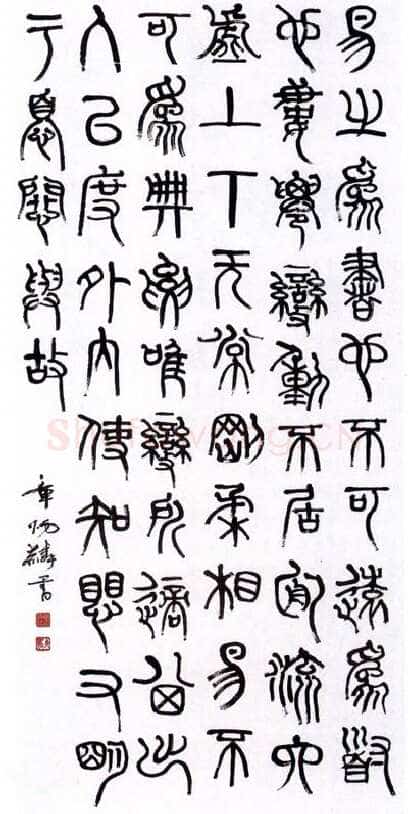 易之爲書也不可遠爲道
也婁遷變動不居周流六
虛上下无常剛柔相易不
可爲典要唯變所適其出
入以度外內使知懼又明
于憂患與故
章炳麟書